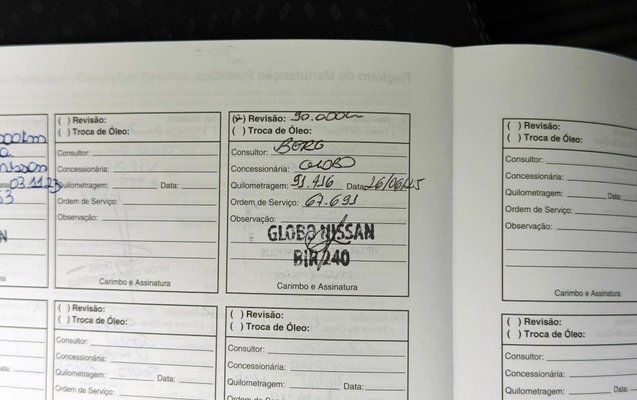 ( ) Revisão:
( ) Troca de Óleo:
Consultor:
Concessionária:
Quilometragem: Data:
Ordem de Serviço:
Observação:
Carimbo e Assinatura
03.11.23
(x) Revisão: 90.000km
( ) Troca de Óleo:
Consultor: BERG
Concessionária: GLOBO
Quilometragem: 91.416 Data: 26/06/25
Ordem de Serviço: 67.691
Observação:
GLOBO NISSAN
BIR/240
Carimbo e Assinatura
( ) Revisão:
( ) Troca de Óleo:
Consultor:
Concessionária:
Quilometragem: Data:
Ordem de Serviço:
Observação:
Carimbo e Assinatura
( ) Revisão:
( ) Troca de Óleo:
Consultor:
Concessionária:
Quilometragem: Data:
Ordem de Serviço:
( ) Revisão:
( ) Troca de Óleo:
Consultor:
Concessionária:
Quilometragem: Data:
Ordem de Serviço:
( ) Revisão:
( ) Troca de Óleo:
Consultor:
Concessionária:
Quilometragem: Data: